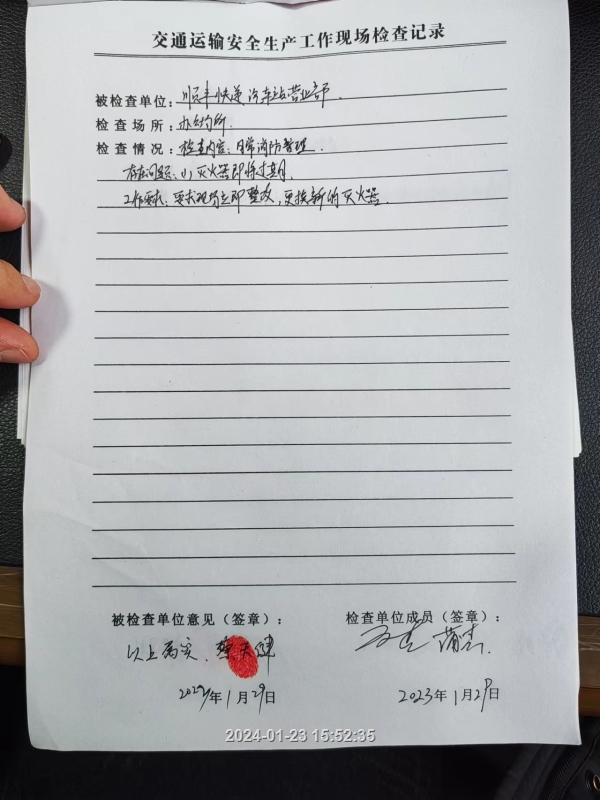 交通运输安全生产工作现场检查记录
被检查单位:顺丰快递汽车站营业部.
检查场所:办公场所.
检查情况:检查内容:日常消防管理.
存在问题:(1)灭火器即将过期.
工作要求:要求现场立即整改,更换新的灭火器.
被检查单位意见(签章): 检查单位成员(签章):
以上属实.
年1月29日 2023年1月29日
2024-01-23 15:52:35